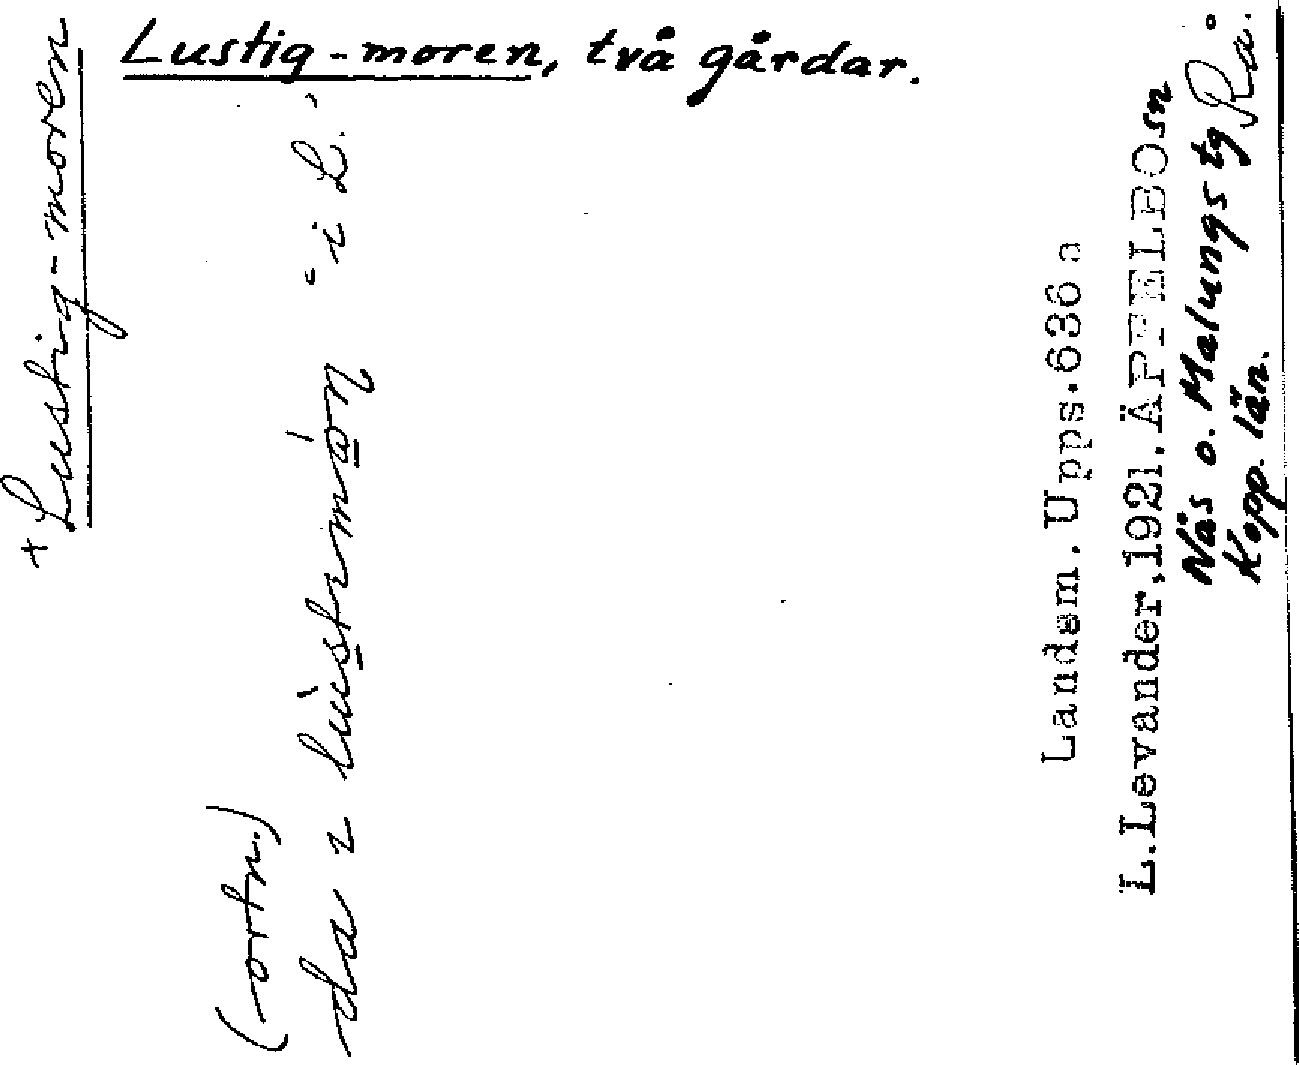 Lustig-moren, två gårdar.
+ Lustig-moren
(-ortn.)
"i L."
Landsm. Upps. 636 a
L. Levander, 1921, ÄPPELBO sn
Nås o. Malungs tg
Kopp. län.